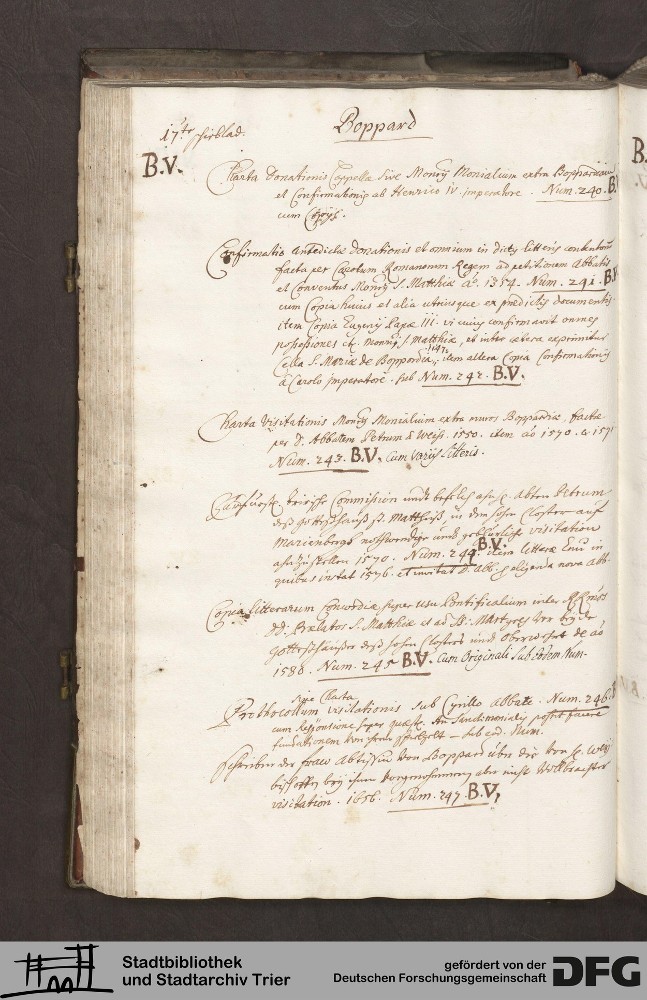 17te schiblad.
Boppard
B.V.
Charta Donationis Cappellae sive Monrij Monialium extra Boppardiam
et Confirmationis ab Henrico IV. imperatore. Num. 240. B.V
cum
Confirmatio antedictae donationis et omnium in dictis litteris contentorum
facta per Carolum Romanorum Regem ad petitionem Abbatis
et Conventus Monrij S. Matthiae aº. 1354. Num. 241. B.V
cum Copia huius et alia utriusque ex praedictis documentis
item Copia Eugenij Papae III. vi cuius confirmavit omnes
possessiones etc. Monrij S. Matthiae, et inter caetera exprimitur
Cella S. Mariae de Boppardia, 1147. item altera Copia Confirmationis
à Carolo imperatore. sub Num. 242. B.V.
Charta Visitationis Monrij Monialium extra muros Boppardiae, facta
per D. Abbatem Petrum à Weiss. 1550. item aº 1570. a. 1571
Num. 243. B.V. Cum varijs litteris.
Commission undt befelch Abten Petrum
deß gottßhauß St. Mattheiß, in dem hohen Closter auff
Marienbergh nothwendige undt gebührliche visitation
anzustellen 1570. Num. 244. B.V. item litterae in
quibus instat 1576. et invitat D. Abb. eligenda nova Abb.
Copia litterarum Concordiae super usu Pontificalium inter
DD. Praelatos S. Matthiae et ad SS. Martyres vor beyde
gottßhäußer deß hohen Closters undt Oberwehrt de aº
1580. Num. 245 B.V. Cum Originali sub eodem Num.
sive Charta
Prothocollum visitationis sub Cyrillo abbate. Num. 246. B
cum Responsione super quaest. An Sanctimoniales possit facere
fundationem von ihren — sub eod. Num.
schreiben der fraw Abtissin von Boppard über die von H. Weij
bischoffen bey ihnen vorgenohmmen aber nicht vollbrachter
visitation. 1656. Num. 247. B.V.
B.
Stadtbibliothek
und Stadtarchiv Trier
gefördert von der
Deutschen Forschungsgemeinschaft
DFG